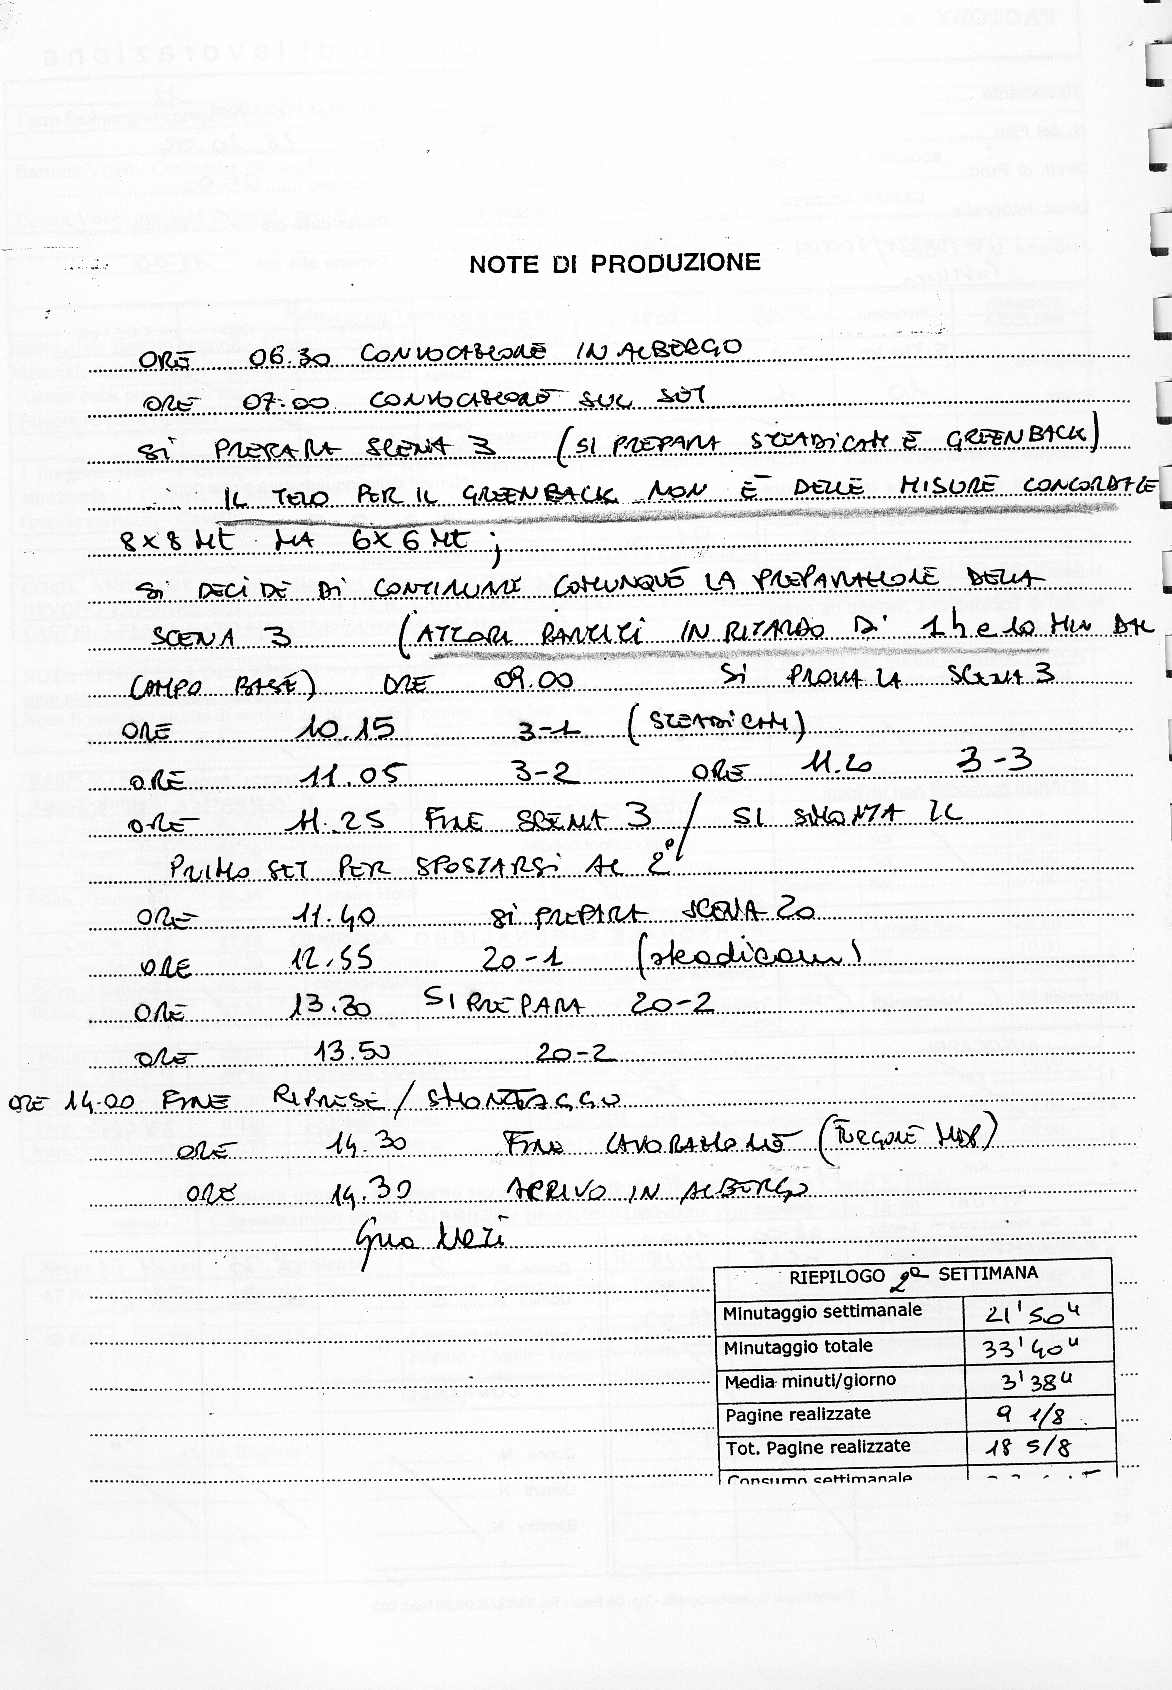 NOTE DI PRODUZIONE
ORE 06.30 CONVOCAZIONE IN ALBERGO
ORE 07.00 CONVOCAZIONE SUL SET
SI PREPARA SCENA 3 (SI PREPARA STEADICAM E GREENBACK)
IL TELO PER IL GREENBACK NON È DELLE MISURE CONCORDATE
8X8 Mt MA 6X6 Mt ;
SI DECIDE DI CONTINUARE COMUNQUE LA PREPARAZIONE DELLA
SCENA 3 (ATTORI PARTITI IN RITARDO DI 1h e 10 MIN DAL
CAMPO BASE) ORE 09.00 SI PROVA LA SCENA 3
ORE 10.15 3-1 (STEADICAM)
ORE 11.05 3-2 ORE 11.20 3-3
ORE 11.25 FINE SCENA 3 / SI SMONTA IL
PRIMO SET PER SPOSTARSI AL 2°
ORE 11.40 SI PREPARA SCENA 20
ORE 12.55 20-1 (steadicam)
ORE 13.30 SI PREPARA 20-2
ORE 13.50 20-2
ORE 14.00 FINE RIPRESE / SMONTAGGO
ORE 14.30 FINE LAVORAZIONE (FURGONE MDP)
ORE 14.30 ARRIVO IN ALBERGO
RIEPILOGO 2a SETTIMANA
Minutaggio settimanale 21'50"
Minutaggio totale 33'40"
Media minuti/giorno 3'38"
Pagine realizzate 9 1/8
Tot. Pagine realizzate 18 5/8
Consumo settimanale